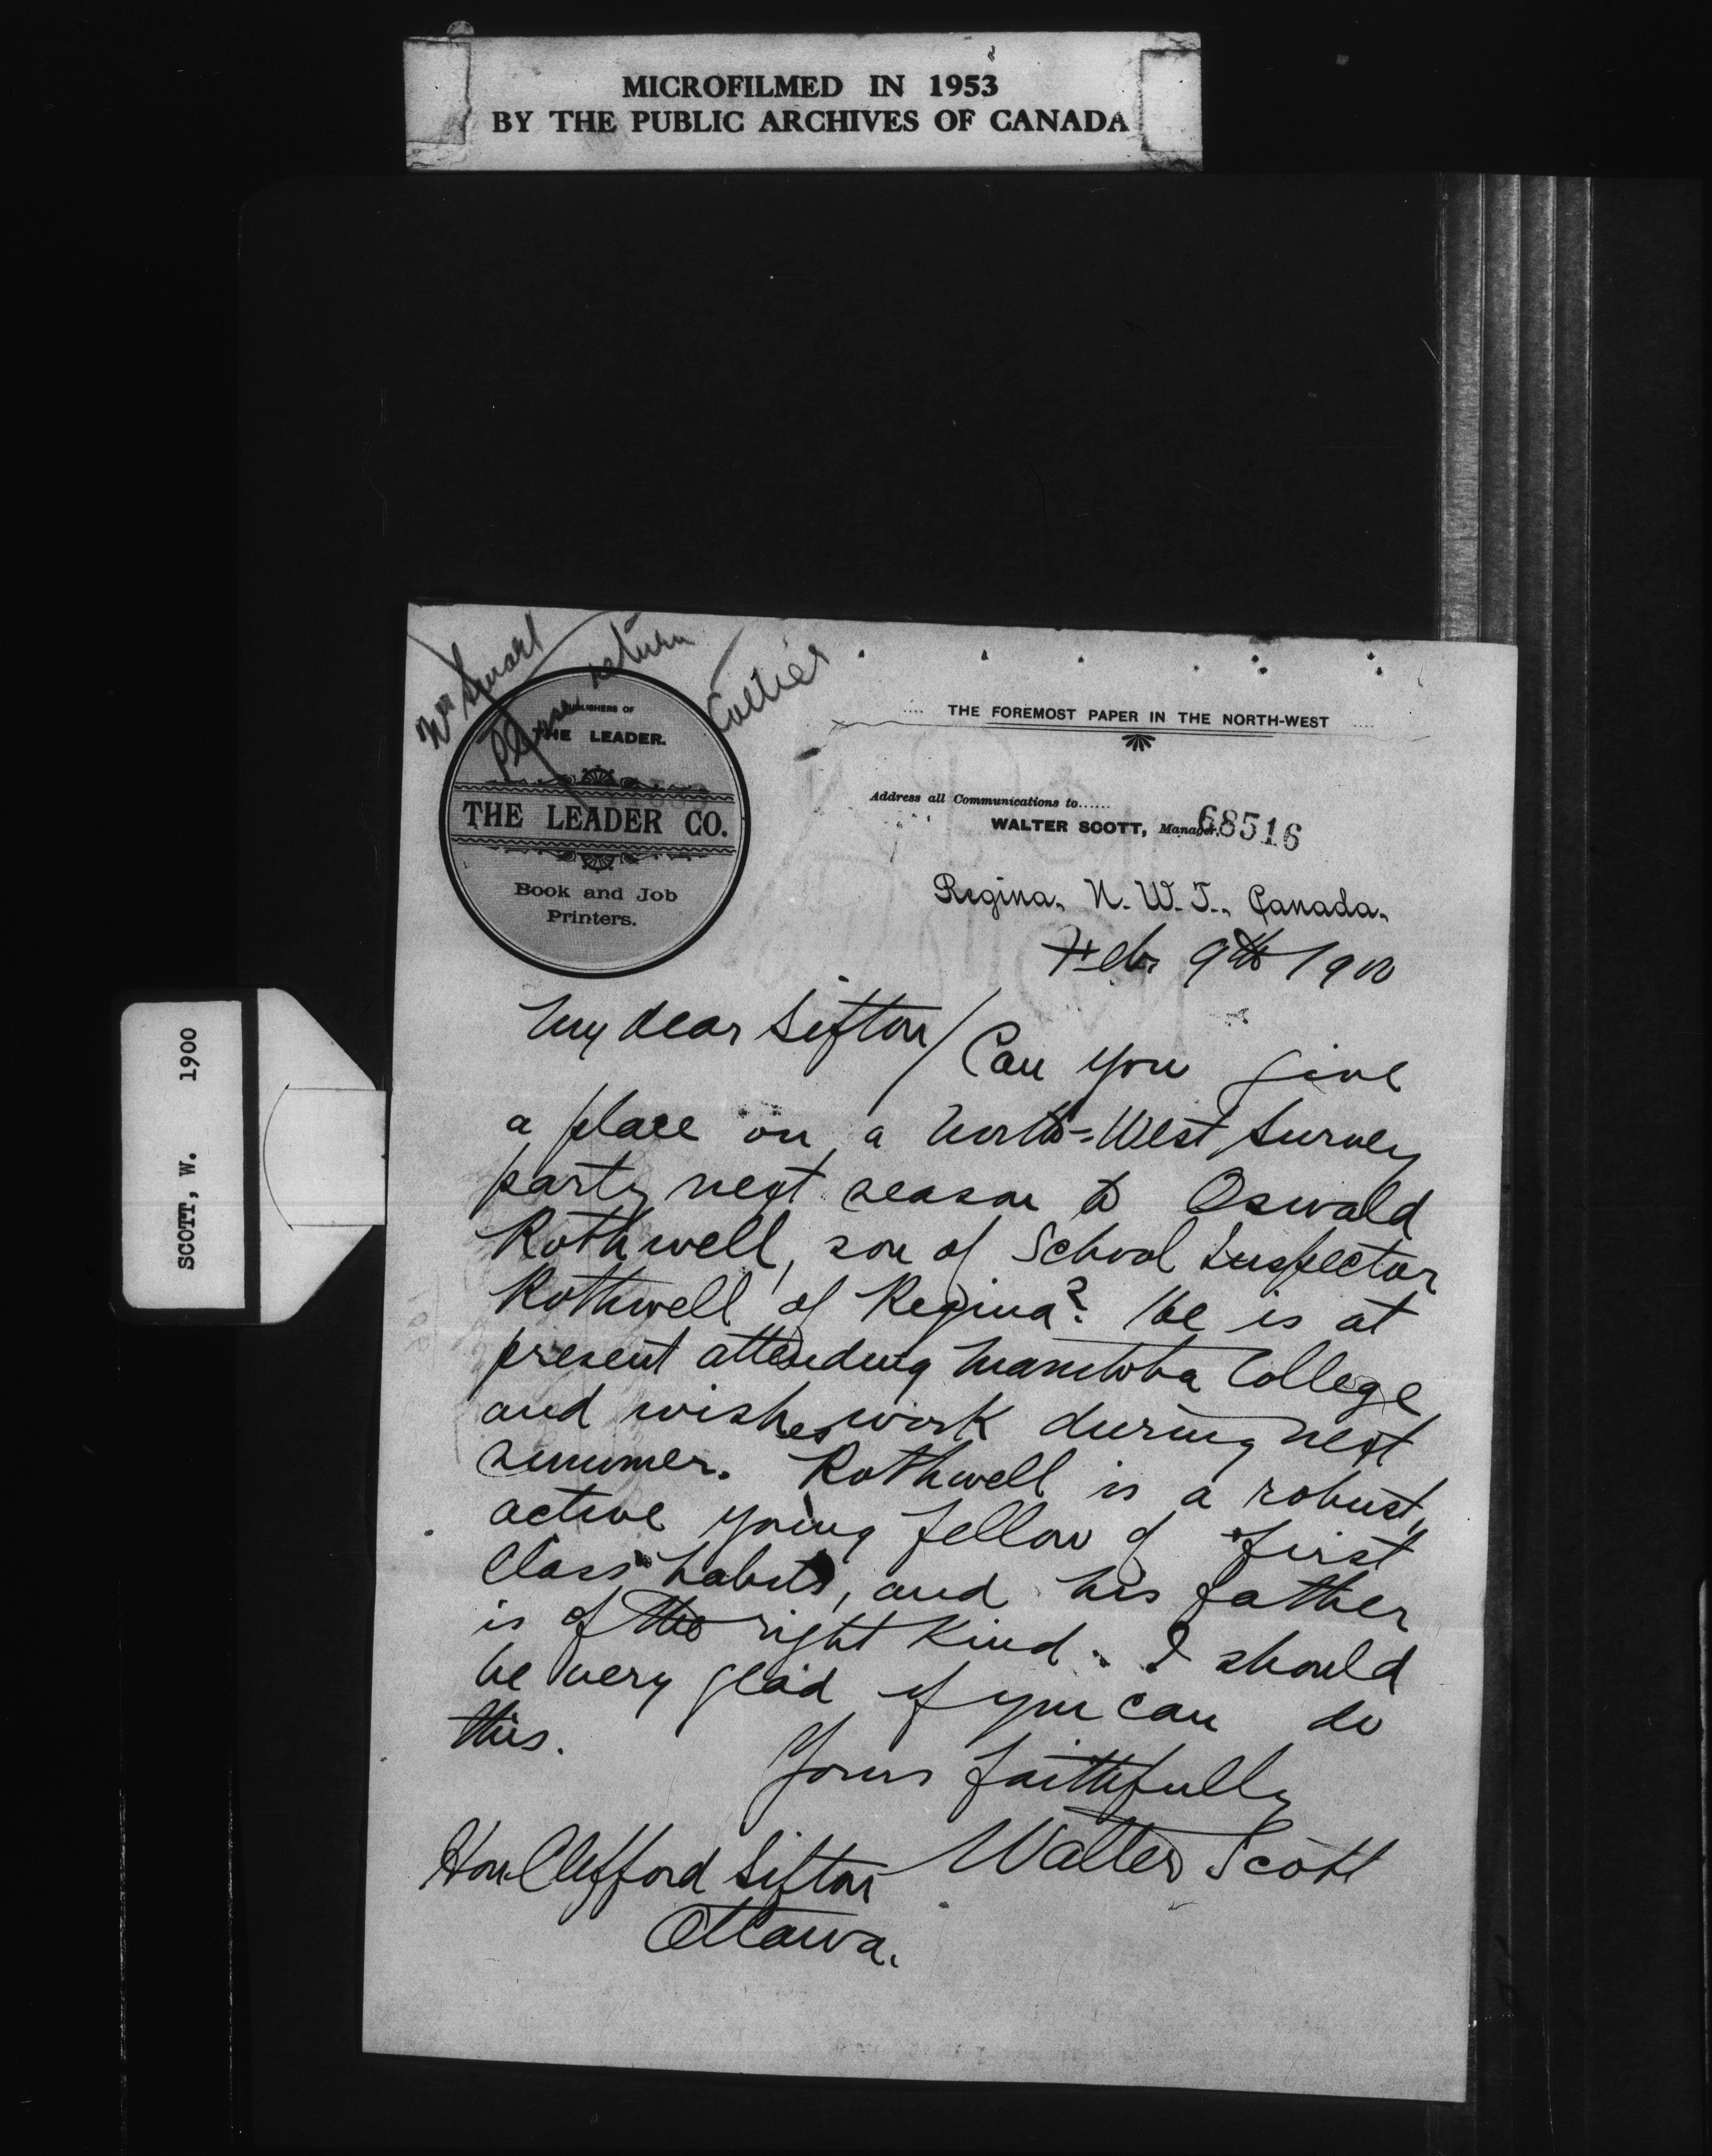 MICROFILMED IN 1953
BY THE PUBLIC ARCHIVES OF CANADA
SCOTT, W. 1900
Mr Smart
Please return
PUBLISHERS OF
THE LEADER.
THE LEADER CO.
Book and Job
Printers.
THE FOREMOST PAPER IN THE NORTH-WEST
Address all Communications to......
WALTER SCOTT, Manager.
68516
Regina, N. W. T., Canada,
Feb. 9th 1900
My dear Sifton/ Can you give
a place on a North-West Survey
party next season to Oswald
Rothwell, son of School Inspector
Rothwell of Regina? He is at
present attending Manitoba College
and wishes work during next
summer. Rothwell is a robust,
active young fellow of first
class habits, and his father
is of the right kind. I should
be very glad if you can do
this.
Yours faithfully
Walter Scott
Hon Clifford Sifton
Ottawa.